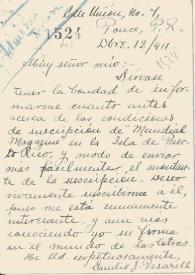 Calle Unión, No. 7,
1524 Ponce, P.R.
Dbre. 12/911
Muy señor mio:
Sírvase
tener la bondad de infor-
marme cuanto antes
acerca de las condiciones
de suscripción de "Mundial
Magazine" en la Isla de Puerto
Rico, y modo de enviar
más facilmente el montan-
te de la suscripción. Deseo
vivamente suscribirme a él,
pues me está sumamente
interesante, y aun más
conociendo yo su firma
en el mundo de las letras.
De Ud. respetuosamente,
Emilio J. Pasarell